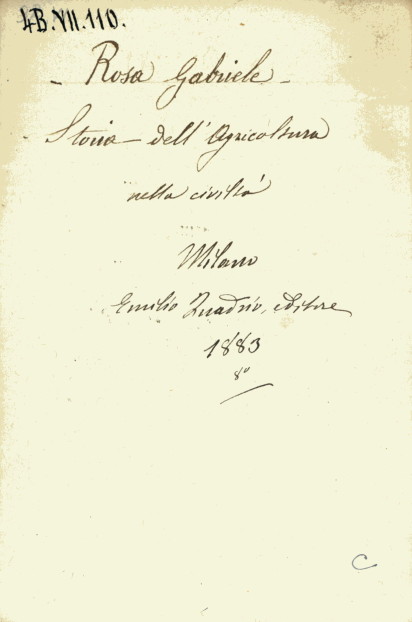 4B.VII.110.
- Rosa Gabriele -
Storia dell'Agricoltura
nella civiltà
Milano
Emilio Quadrio, editore
1883
8º
C